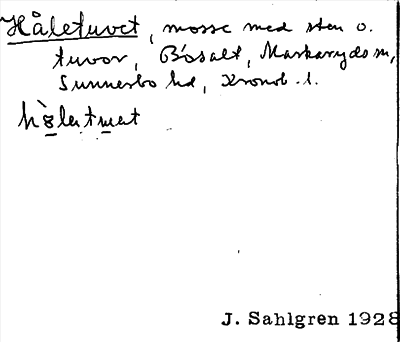 Håletuvet, mosse med sten o.
tuvor, Bösalt, Markaryds sn,
Sunnerbo hd, Kronob. l.
J. Sahlgren 1928